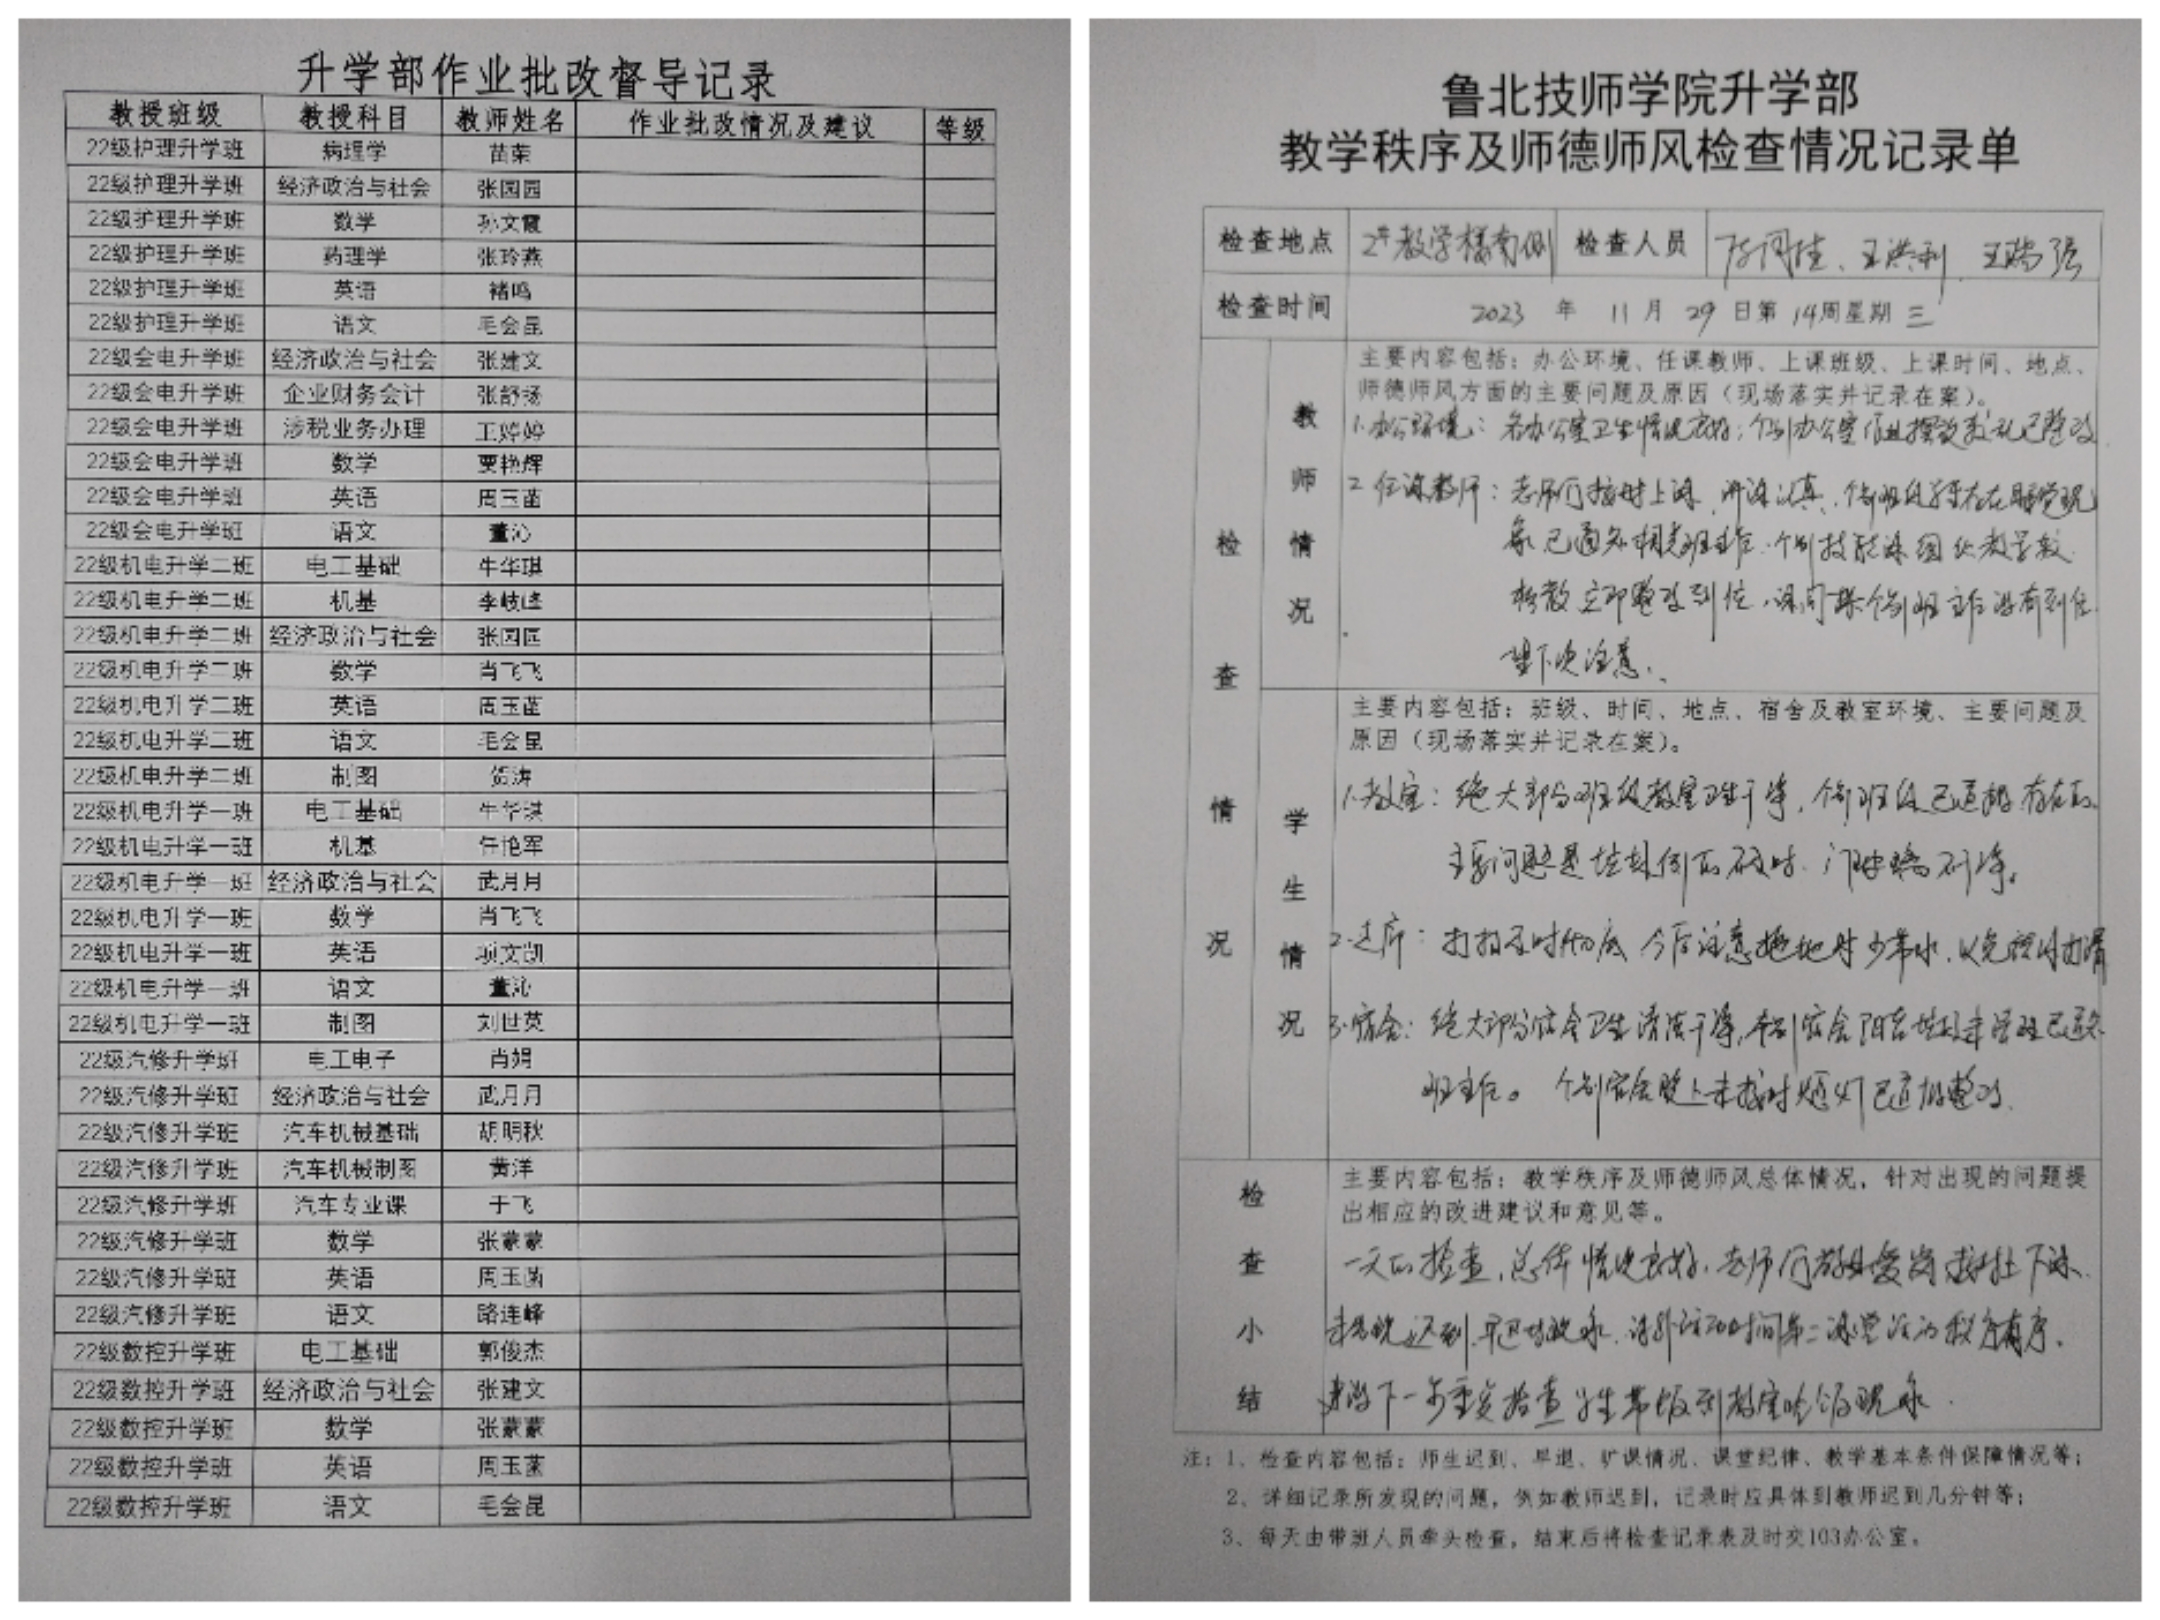 升学部作业批改督导记录
教授班级 教授科目 教师姓名 作业批改情况及建议 等级
22级护理升学班 病理学 苗荣
22级护理升学班 经济政治与社会 张园园
22级护理升学班 数学 孙文霞
22级护理升学班 药理学 张玲燕
22级护理升学班 英语 褚鸣
22级护理升学班 语文 毛会昆
22级会电升学班 经济政治与社会 张建文
22级会电升学班 企业财务会计 张舒扬
22级会电升学班 涉税业务办理 王婷婷
22级会电升学班 数学 贾艳辉
22级会电升学班 英语 周玉菡
22级会电升学班 语文 董沁
22级机电升学二班 电工基础 牛华琪
22级机电升学二班 机基 李岐峰
22级机电升学二班 经济政治与社会 张园园
22级机电升学二班 数学 肖飞飞
22级机电升学二班 英语 周玉菡
22级机电升学二班 语文 毛会昆
22级机电升学二班 制图 贺涛
22级机电升学一班 电工基础 牛华琪
22级机电升学一班 机基 任艳军
22级机电升学一班 经济政治与社会 武月月
22级机电升学一班 数学 肖飞飞
22级机电升学一班 英语 项文凯
22级机电升学一班 语文 董沁
22级机电升学一班 制图 刘世英
22级汽修升学班 电工电子 肖娟
22级汽修升学班 经济政治与社会 武月月
22级汽修升学班 汽车机械基础 胡明秋
22级汽修升学班 汽车机械制图 黄洋
22级汽修升学班 汽车专业课 于飞
22级汽修升学班 数学 张蒙蒙
22级汽修升学班 英语 周玉菡
22级汽修升学班 语文 路连峰
22级数控升学班 电工基础 郭俊杰
22级数控升学班 经济政治与社会 张建文
22级数控升学班 数学 张蒙蒙
22级数控升学班 英语 周玉菡
22级数控升学班 语文 毛会昆
鲁北技师学院升学部
教学秩序及师德师风检查情况记录单
检查地点 2#教学楼南侧 检查人员 王洪利、王瑞强
检查时间 2023 年 11 月 29 日第 14周星期 三
检查情况
教师情况
主要内容包括：办公环境、任课教师、上课班级、上课时间、地点、
师德师风方面的主要问题及原因（现场落实并记录在案）。
1.办公环境：各办公室卫生情况良好；个别办公室作业摆放较乱已整改
2.任课教师：老师们按时上课，讲课认真，个别班级学生存在睡觉现
象已通知相关班主任.个别技能课组织教学较
松散立即整改到位，课间操个别班主任没有到位
望下次注意.
学生情况
主要内容包括：班级、时间、地点、宿舍及教室环境、主要问题及
原因（现场落实并记录在案）。
1.教室：绝大部分班级教室卫生干净，个别班级已通报存在的
主要问题是垃圾倒的不及时.门玻璃不干净。
2.走廊：打扫及时彻底 今后注意拖地时少带水，以免滑
3.宿舍：绝大部分宿舍卫生清洁干净，个别宿舍阳台垃圾未清理已通知
班主任。个别宿舍晚上未按时熄灯已通报整改.
检查小结
主要内容包括：教学秩序及师德师风总体情况，针对出现的问题提
出相应的改进建议和意见等。
一天的检查，总体情况良好，老师们都能爱岗按时上下课.
未出现迟到.早退等现象.课外活动时间第二课堂活动秩序有序.
下一步重点检查学生带饭到教室吃饭现象.
注：1、检查内容包括：师生迟到、早退、旷课情况、课堂纪律、教学基本条件保障情况等；
2、详细记录所发现的问题，例如教师迟到，记录时应具体到教师迟到几分钟等；
3、每天由带班人员牵头检查，结束后将检查记录表及时交103办公室。